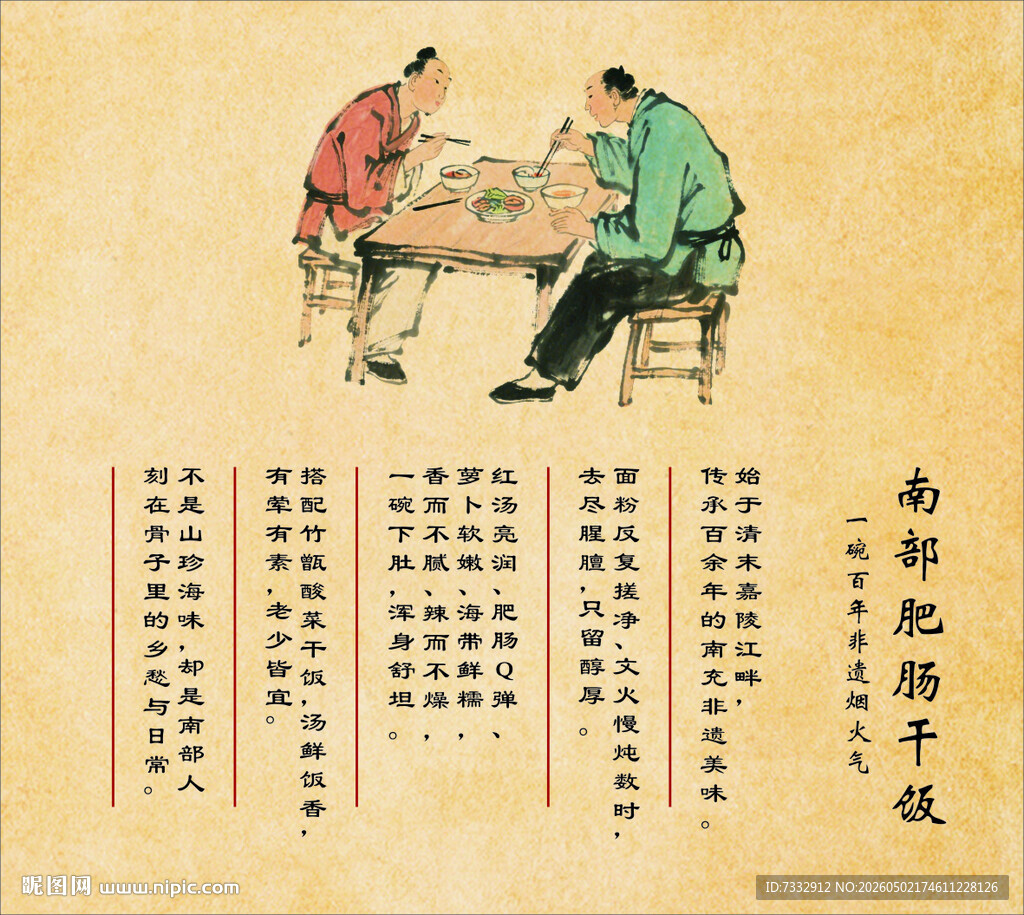 南部肥肠干饭
一碗百年非遗烟火气
始于清末嘉陵江畔，
传承百余年的南充非遗美味。
面粉反复搓净、文火慢炖数时，
去尽腥膻，只留醇厚。
红汤亮润、肥肠Q弹、
萝卜软嫩、海带鲜糯，
香而不腻、辣而不燥，
一碗下肚，浑身舒坦。
搭配竹甑酸菜干饭，汤鲜饭香，
有荤有素，老少皆宜。
不是山珍海味，却是南部人
刻在骨子里的乡愁与日常。
昵图网 www.nipic.com
ID:7332912 NO:20260502174611228126